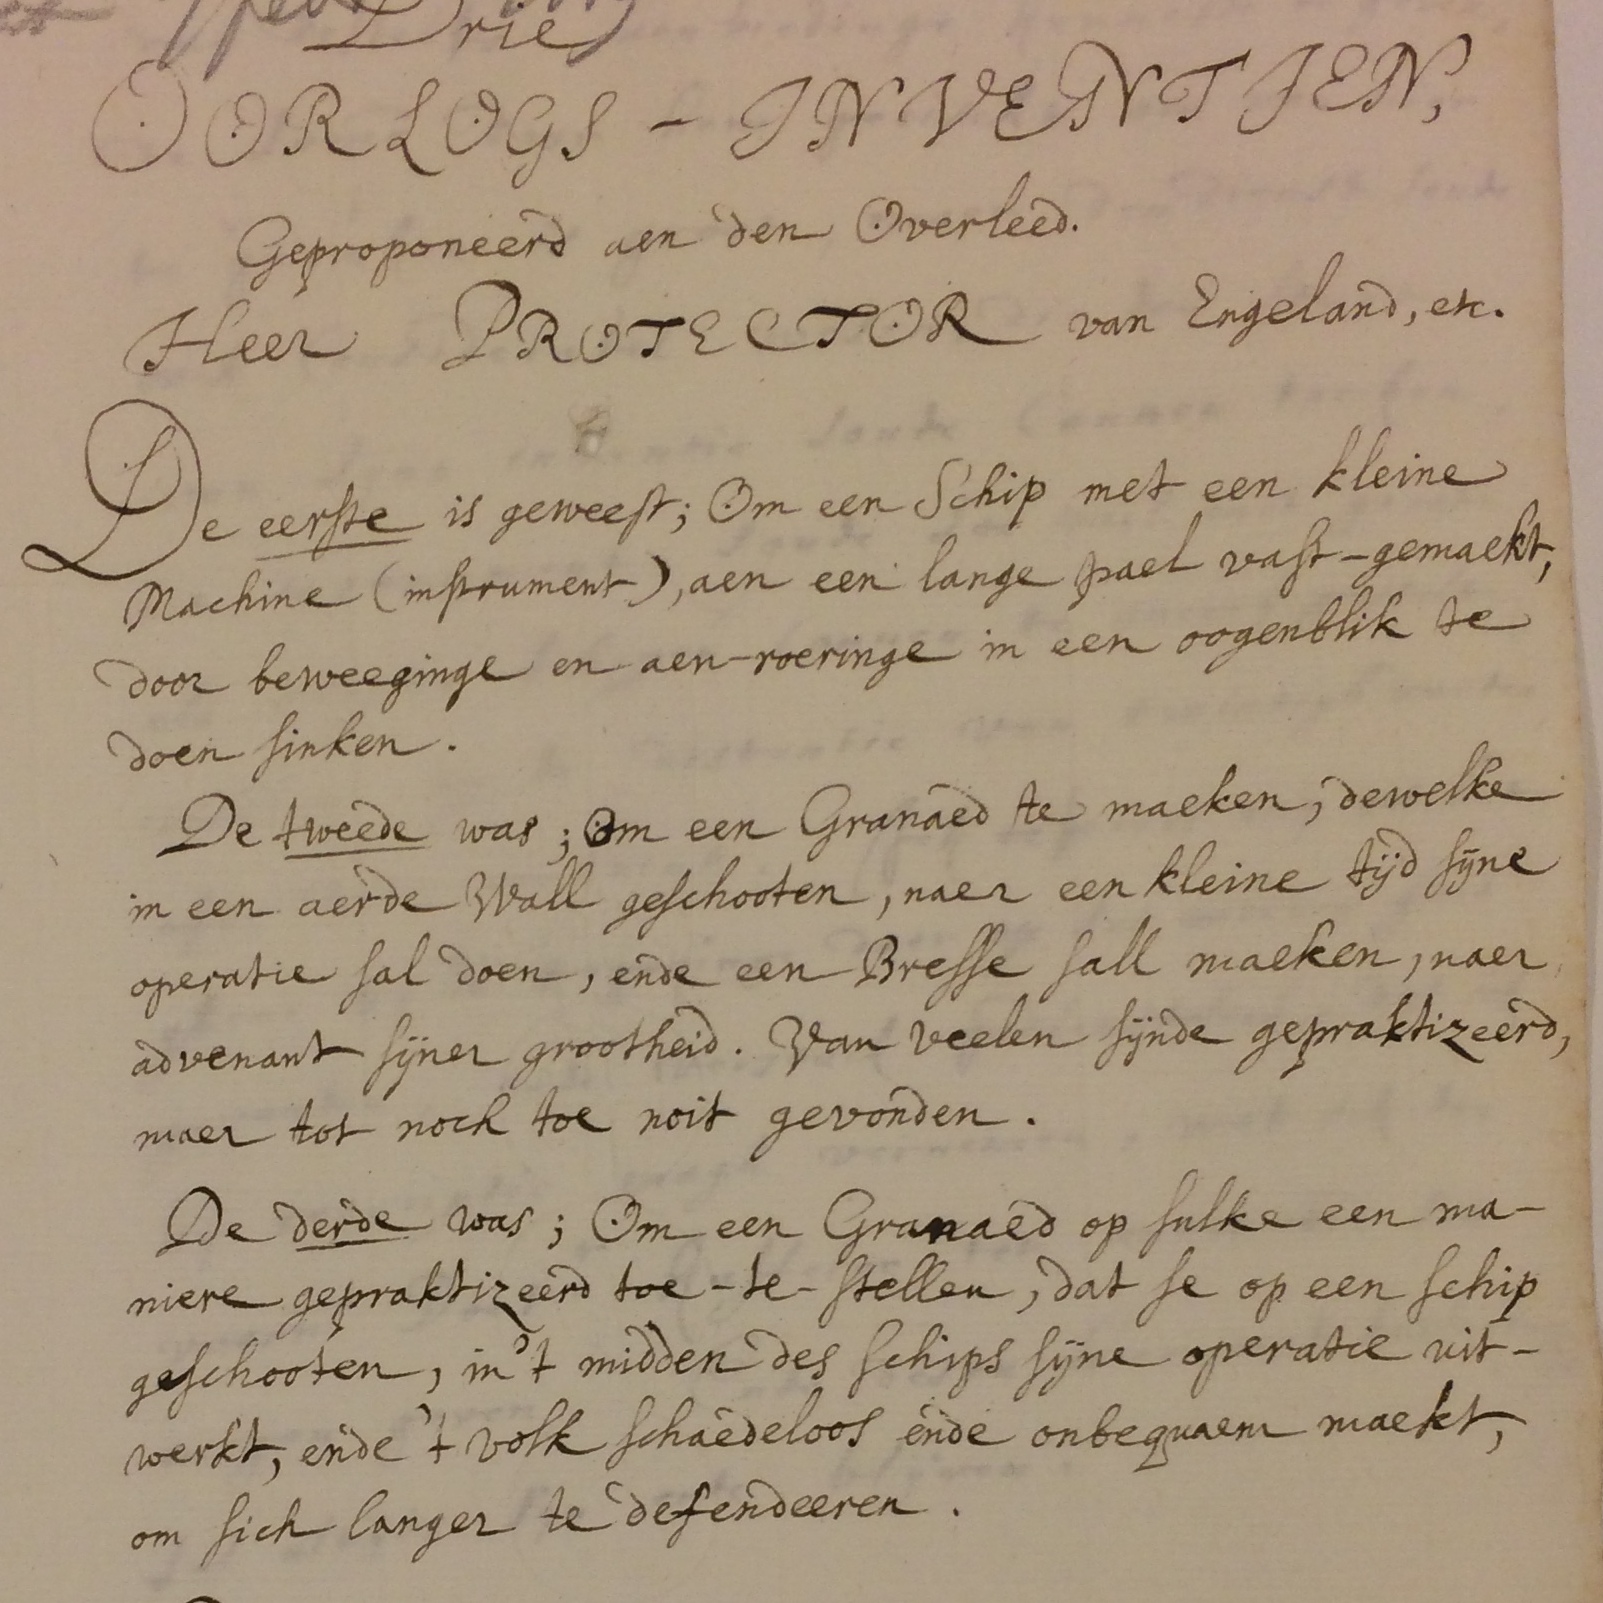 Drie
OORLOGS - INVENTIEN,
Geproponeerd aen den Overleed.
Heer PROTECTOR van Engeland, etc.
De eerste is geweest; Om een Schip met een kleine
Machine (instrument), aen een lange pael vast-gemaekt,
door beweeginge en aen-roeringe in een oogenblik te
doen sinken.
De tweede was; Om een Granaed te maeken, dewelke
in een aerde Wall geschooten, naer een kleine tijd sijne
operatie sal doen, ende een Bresse sall maeken, naer
advenant sijner grootheid. Van veelen sijnde gepraktizeerd,
maer tot noch toe noit gevonden.
De derde was; Om een Granaed op sulke een ma-
niere gepraktizeerd toe-te-stellen, dat se op een schip
geschooten, in't midden des schips sijne operatie uit-
werkt, ende 't volk schaedeloos ende onbequaem maekt,
om sich langer te defendeeren.